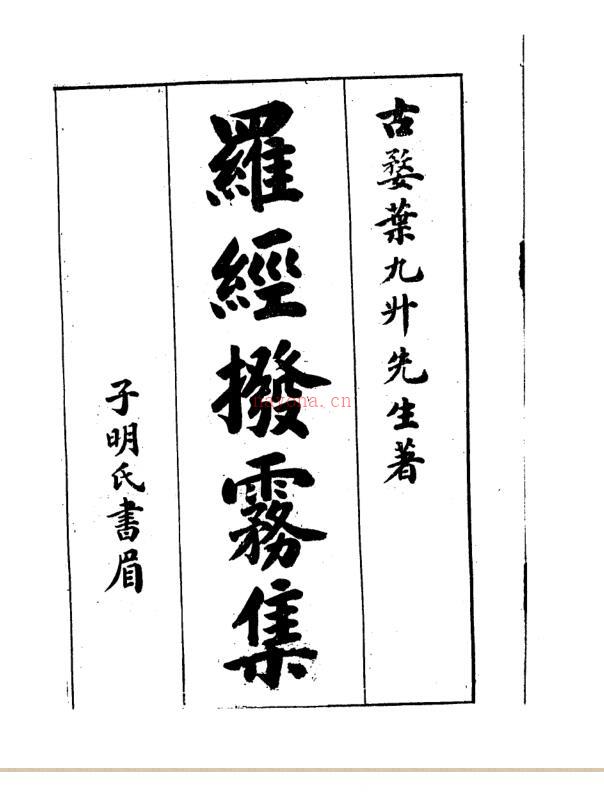 古婺葉九升先生著
羅經撥霧集
子明氏書眉
nayona.cn